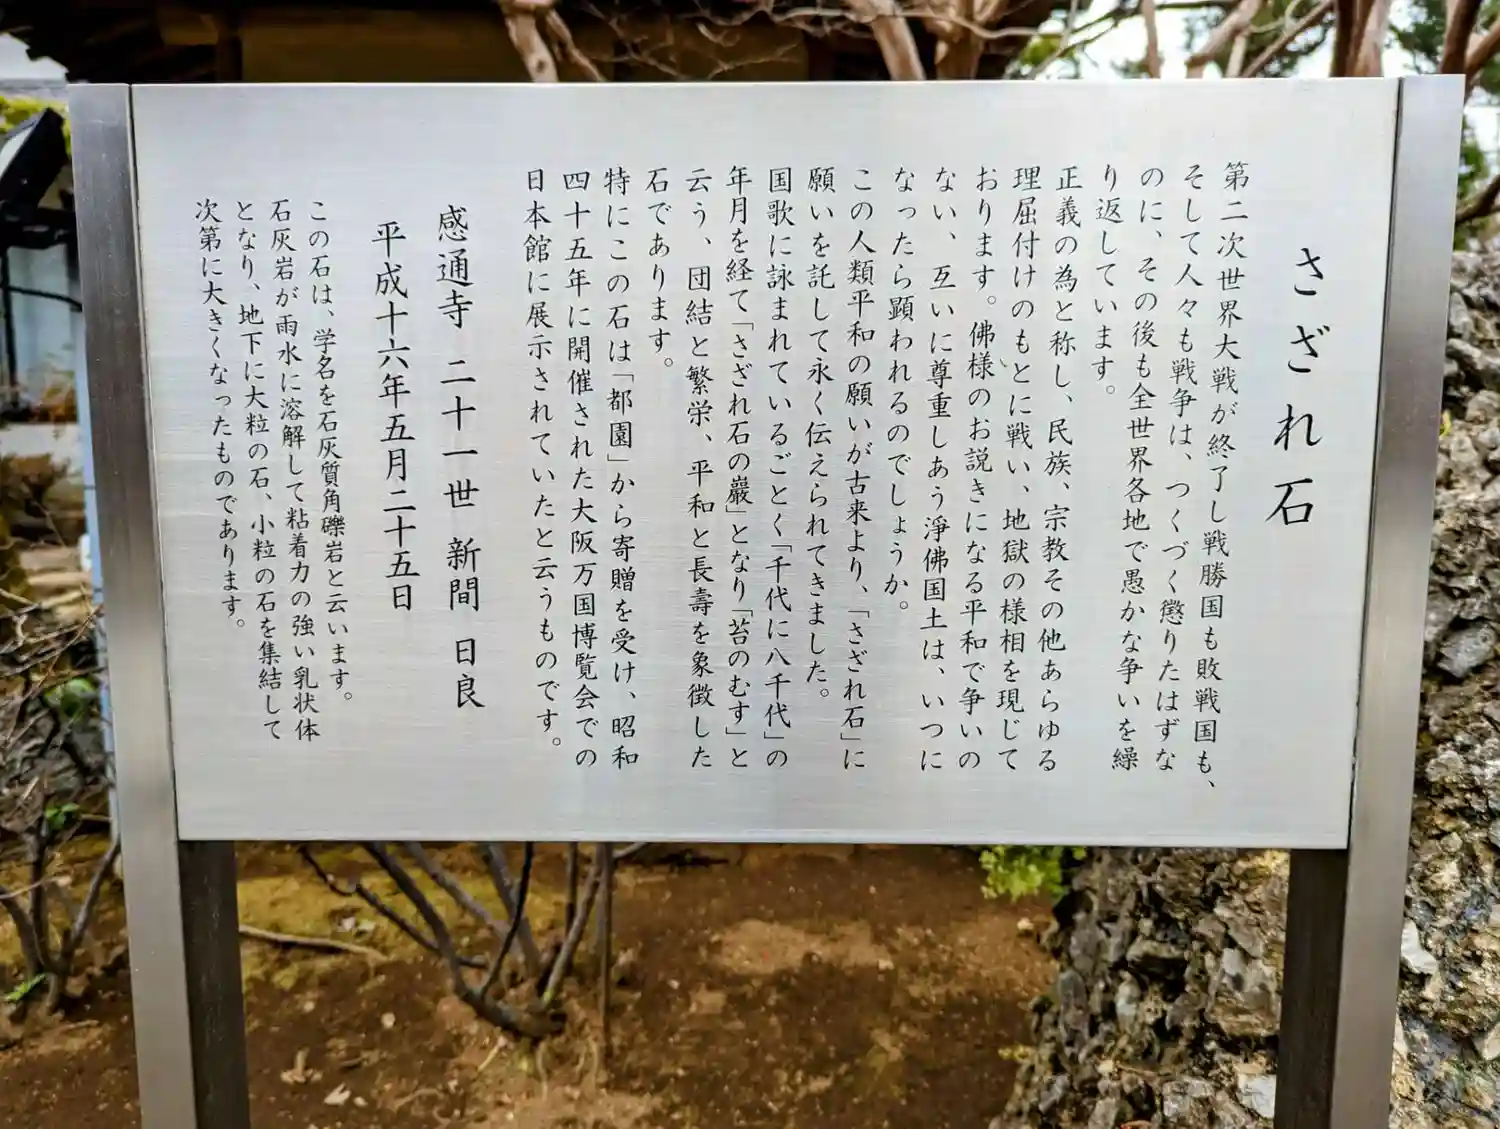 さざれ石
第二次世界大戦が終了し戦勝国も敗戦国も、
そして人々も戦争は、つくづく懲りたはずな
のに、その後も全世界各地で愚かな争いを繰
り返しています。
正義の為と称し、民族、宗教その他あらゆる
理屈付けのもとに戦い、地獄の様相を現じて
おります。佛様のお説きになる平和で争いの
ない、互いに尊重しあう淨佛国土は、いつに
なったら顕われるのでしょうか。
この人類平和の願いが古来より、「さざれ石」に
願いを託して永く伝えられてきました。
国歌に詠まれているごとく「千代に八千代」の
年月を経て「さざれ石の巌」となり「苔のむす」と
云う、団結と繁栄、平和と長壽を象徴した
石であります。
特にこの石は「都園」から寄贈を受け、昭和
四十五年に開催された大阪万国博覧会での
日本館に展示されていたと云うものです。
感通寺 二十一世 新間 日良
平成十六年五月二十五日
この石は、学名を石灰質角礫岩と云います。
石灰岩が雨水に溶解して粘着力の強い乳状体
となり、地下に大粒の石、小粒の石を集結して
次第に大きくなったものであります。